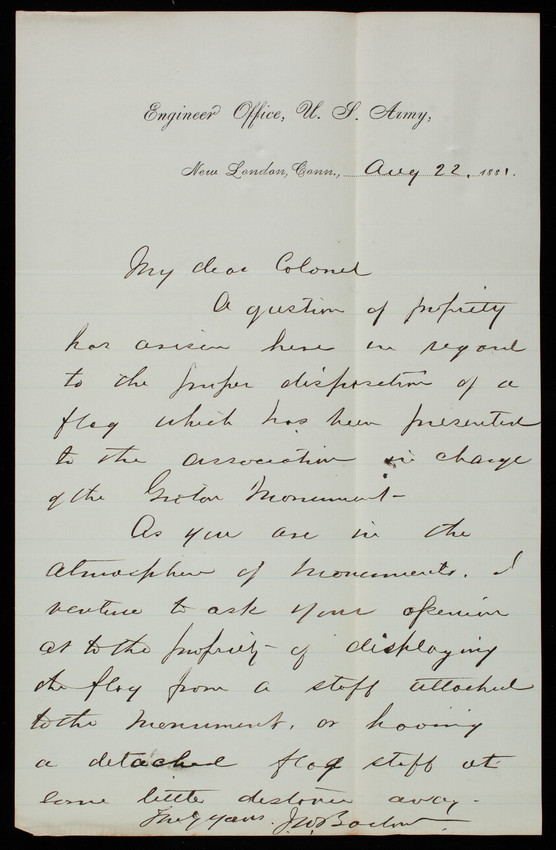 Engineer Office, U. S. Army,
New London, Conn., Aug 22, 1881.
My dear Colonel
A question of propriety
has arisen here in regard
to the proper disposition of a
flag which has been presented
to the association in charge
of the Groton Monument-
As you are in the
atmosphere of monuments, I
venture to ask your opinion
as to the propriety of displaying
the flag from a staff attached
to the monument, or having
a detached flag staff at
some little distance away-
Truly yours. J.W. Barlow